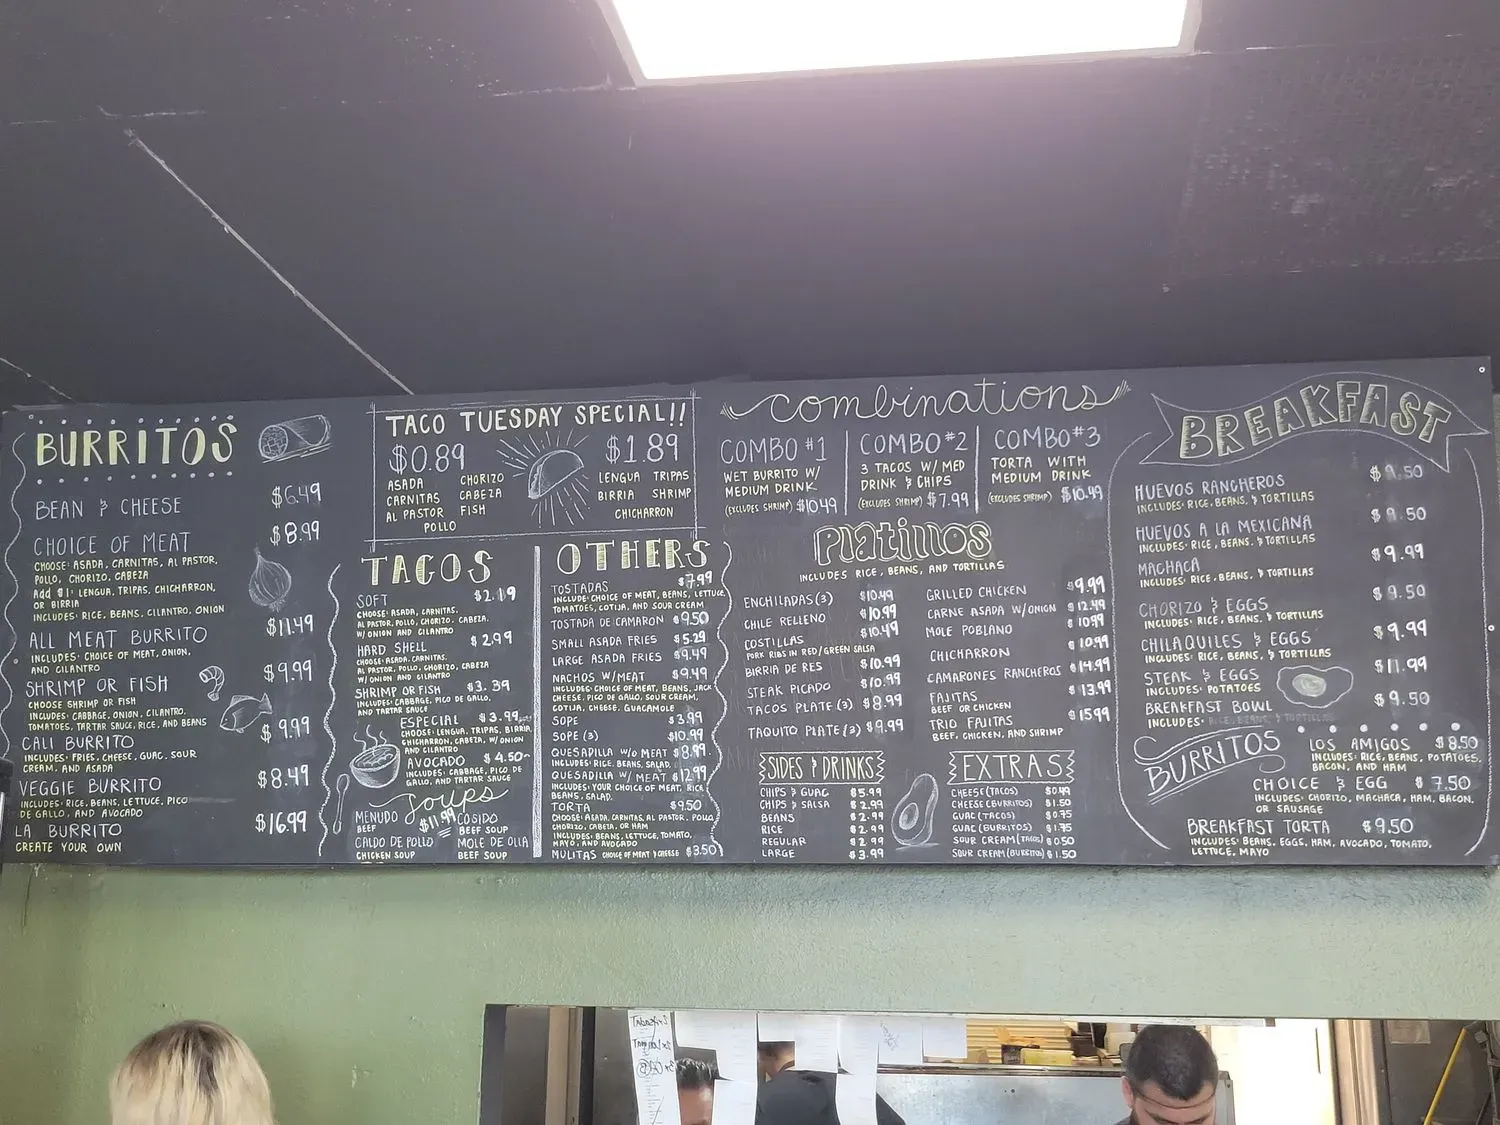 BURRITOS
BEAN & CHEESE $6.49
CHOICE OF MEAT $8.99
CHOOSE: ASADA, CARNITAS, AL PASTOR,
POLLO, CHORIZO, CABEZA
Add $1: LENGUA, TRIPAS, CHICHARRON,
OR BIRRIA
INCLUDES: RICE, BEANS, CILANTRO, ONION
ALL MEAT BURRITO $11.49
INCLUDES: CHOICE OF MEAT, ONION,
AND CILANTRO
SHRIMP OR FISH $9.99
CHOOSE SHRIMP OR FISH
INCLUDES: CABBAGE, ONION, CILANTRO,
TOMATOES, TARTAR SAUCE, RICE, AND BEANS
CALI BURRITO $9.99
INCLUDES: FRIES, CHEESE, GUAC, SOUR
CREAM, AND ASADA
VEGGIE BURRITO $8.49
INCLUDES: RICE, BEANS, LETTUCE, PICO
DE GALLO, AND AVOCADO
LA BURRITO $16.99
CREATE YOUR OWN
TACO TUESDAY SPECIAL!!
$0.89
ASADA CHORIZO
CARNITAS CABEZA
AL PASTOR FISH
POLLO
$1.89
LENGUA TRIPAS
BIRRIA SHRIMP
CHICHARRON
TACOS
SOFT $2.19
CHOOSE: ASADA, CARNITAS,
AL PASTOR, POLLO, CHORIZO, CABEZA,
W/ONION AND CILANTRO
HARD SHELL $2.99
CHOOSE: ASADA, CARNITAS,
AL PASTOR, POLLO, CHORIZO, CABEZA
W/ONION AND CILANTRO
SHRIMP OR FISH $3.39
INCLUDES: CABBAGE, PICO DE GALLO,
AND TARTAR SAUCE
ESPECIAL $3.99
CHOOSE: LENGUA, TRIPAS, BIRRIA,
CHICHARRON, CABEZA, W/ONION
AND CILANTRO
AVOCADO $4.50
INCLUDES: CABBAGE, PICO DE
GALLO, AND TARTAR SAUCE
Soups
$11.99
MENUDO COSIDO
BEEF BEEF SOUP
CALDO DE POLLO MOLE DE OLLA
CHICKEN SOUP BEEF SOUP
OTHERS
TOSTADAS $7.99
INCLUDE: CHOICE OF MEAT, BEANS, LETTUCE,
TOMATOES, COTIJA, AND SOUR CREAM
TOSTADA DE CAMARON $9.50
SMALL ASADA FRIES $5.29
LARGE ASADA FRIES $9.49
NACHOS W/MEAT $9.49
INCLUDES: CHOICE OF MEAT, BEANS, JACK
CHEESE, PICO DE GALLO, SOUR CREAM,
COTIJA, CHEESE, GUACAMOLE
SOPE $3.99
SOPE (3) $10.99
QUESADILLA W/O MEAT $8.99
INCLUDES: RICE, BEANS, SALAD
QUESADILLA W/ MEAT $12.99
INCLUDES: YOUR CHOICE OF MEAT, RICE
BEANS, SALAD
TORTA $9.50
CHOOSE: ASADA, CARNITAS, AL PASTOR, POLLO
CHORIZO, CABEZA, OR HAM
INCLUDES: BEANS, LETTUCE, TOMATO,
MAYO, AND AVOCADO
MULITAS CHOICE OF MEAT & CHEESE $3.50
combinations
COMBO #1
WET BURRITO W/
MEDIUM DRINK
(EXCLUDES SHRIMP) $10.49
COMBO #2
3 TACOS W/ MED
DRINK & CHIPS
(EXCLUDES SHRIMP) $7.99
COMBO #3
TORTA WITH
MEDIUM DRINK
(EXCLUDES SHRIMP) $10.49
Platillos
INCLUDES RICE, BEANS, AND TORTILLAS
ENCHILADAS (3) $10.49
CHILE RELLENO $10.99
COSTILLAS $10.49
PORK RIBS IN RED/GREEN SALSA
BIRRIA DE RES $10.99
STEAK PICADO $10.99
TACOS PLATE (3) $8.99
TAQUITO PLATE (3) $9.99
GRILLED CHICKEN $9.99
CARNE ASADA W/ONION $12.49
MOLE POBLANO $10.99
CHICHARRON $10.99
CAMARONES RANCHEROS $14.99
FAJITAS $13.99
BEEF OR CHICKEN
TRIO FAJITAS $15.99
BEEF, CHICKEN, AND SHRIMP
SIDES & DRINKS
CHIPS & GUAC $5.99
CHIPS & SALSA $2.99
BEANS $2.99
RICE $2.99
REGULAR $2.99
LARGE $3.99
EXTRAS
CHEESE (TACOS) $0.49
CHEESE (BURRITOS) $1.50
GUAC (TACOS) $0.75
GUAC (BURRITOS) $1.75
SOUR CREAM (TACOS) $0.50
SOUR CREAM (BURRITOS) $1.50
BREAKFAST
HUEVOS RANCHEROS $9.50
INCLUDES: RICE, BEANS, & TORTILLAS
HUEVOS A LA MEXICANA $9.50
INCLUDES: RICE, BEANS, & TORTILLAS
MACHACA $9.99
INCLUDES: RICE, BEANS, & TORTILLAS
CHORIZO & EGGS $9.50
INCLUDES: RICE, BEANS, & TORTILLAS
CHILAQUILES & EGGS $9.99
INCLUDES: RICE, BEANS, & TORTILLAS
STEAK & EGGS $11.99
INCLUDES: POTATOES
BREAKFAST BOWL $9.50
INCLUDES: RICE, BEANS, & TORTILLAS
BURRITOS
LOS AMIGOS $8.50
INCLUDES: RICE, BEANS, POTATOES,
BACON, AND HAM
CHOICE & EGG $7.50
INCLUDES: CHORIZO, MACHACA, HAM, BACON,
OR SAUSAGE
BREAKFAST TORTA $9.50
INCLUDES: BEANS, EGGS, HAM, AVOCADO, TOMATO,
LETTUCE, MAYO